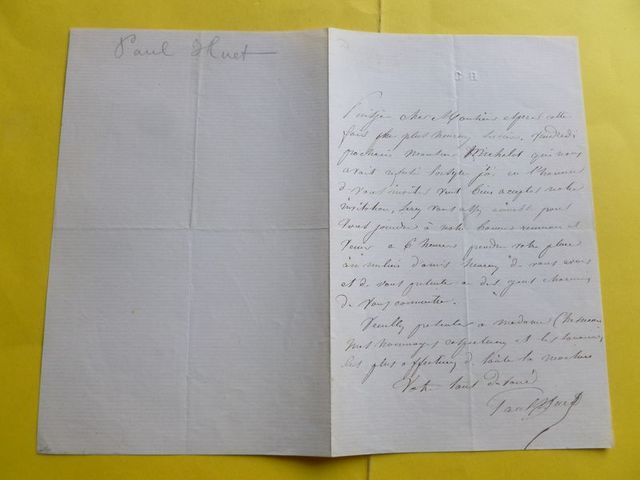 Paul Huet
C H
Puis je cher Monsieur espérer cette
fois plus heureux Vendredi
prochain Monsieur Michelet qui nous
avait lorsque j'ai eu l'honneur
de vous inviter veut bien accepter notre
invitation, serez vous assez aimable pour
vous joindre à notre bonne réunion et
venir à 6 heures prendre votre place
au milieu d'amis heureux de vous avoir
et de vous présenter à des gens charmés
de vous connaître.
Veuillez présenter à madame
mes hommages respectueux et les
les plus affectueux de toute la maison
Votre tout dévoué
Paul Huet